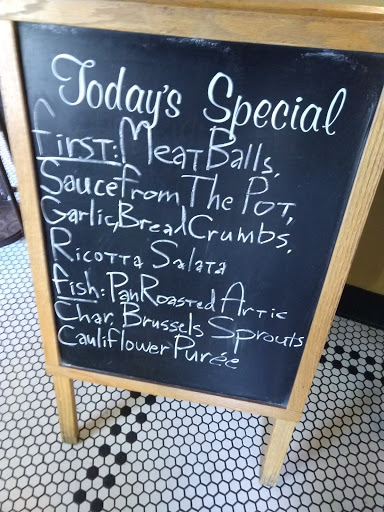 Today's Special
First: Meat Balls,
Sauce from The Pot,
Garlic, Bread Crumbs,
Ricotta Salata
Fish: Pan Roasted Artic
Char, Brussels Sprouts
Cauliflower Purée